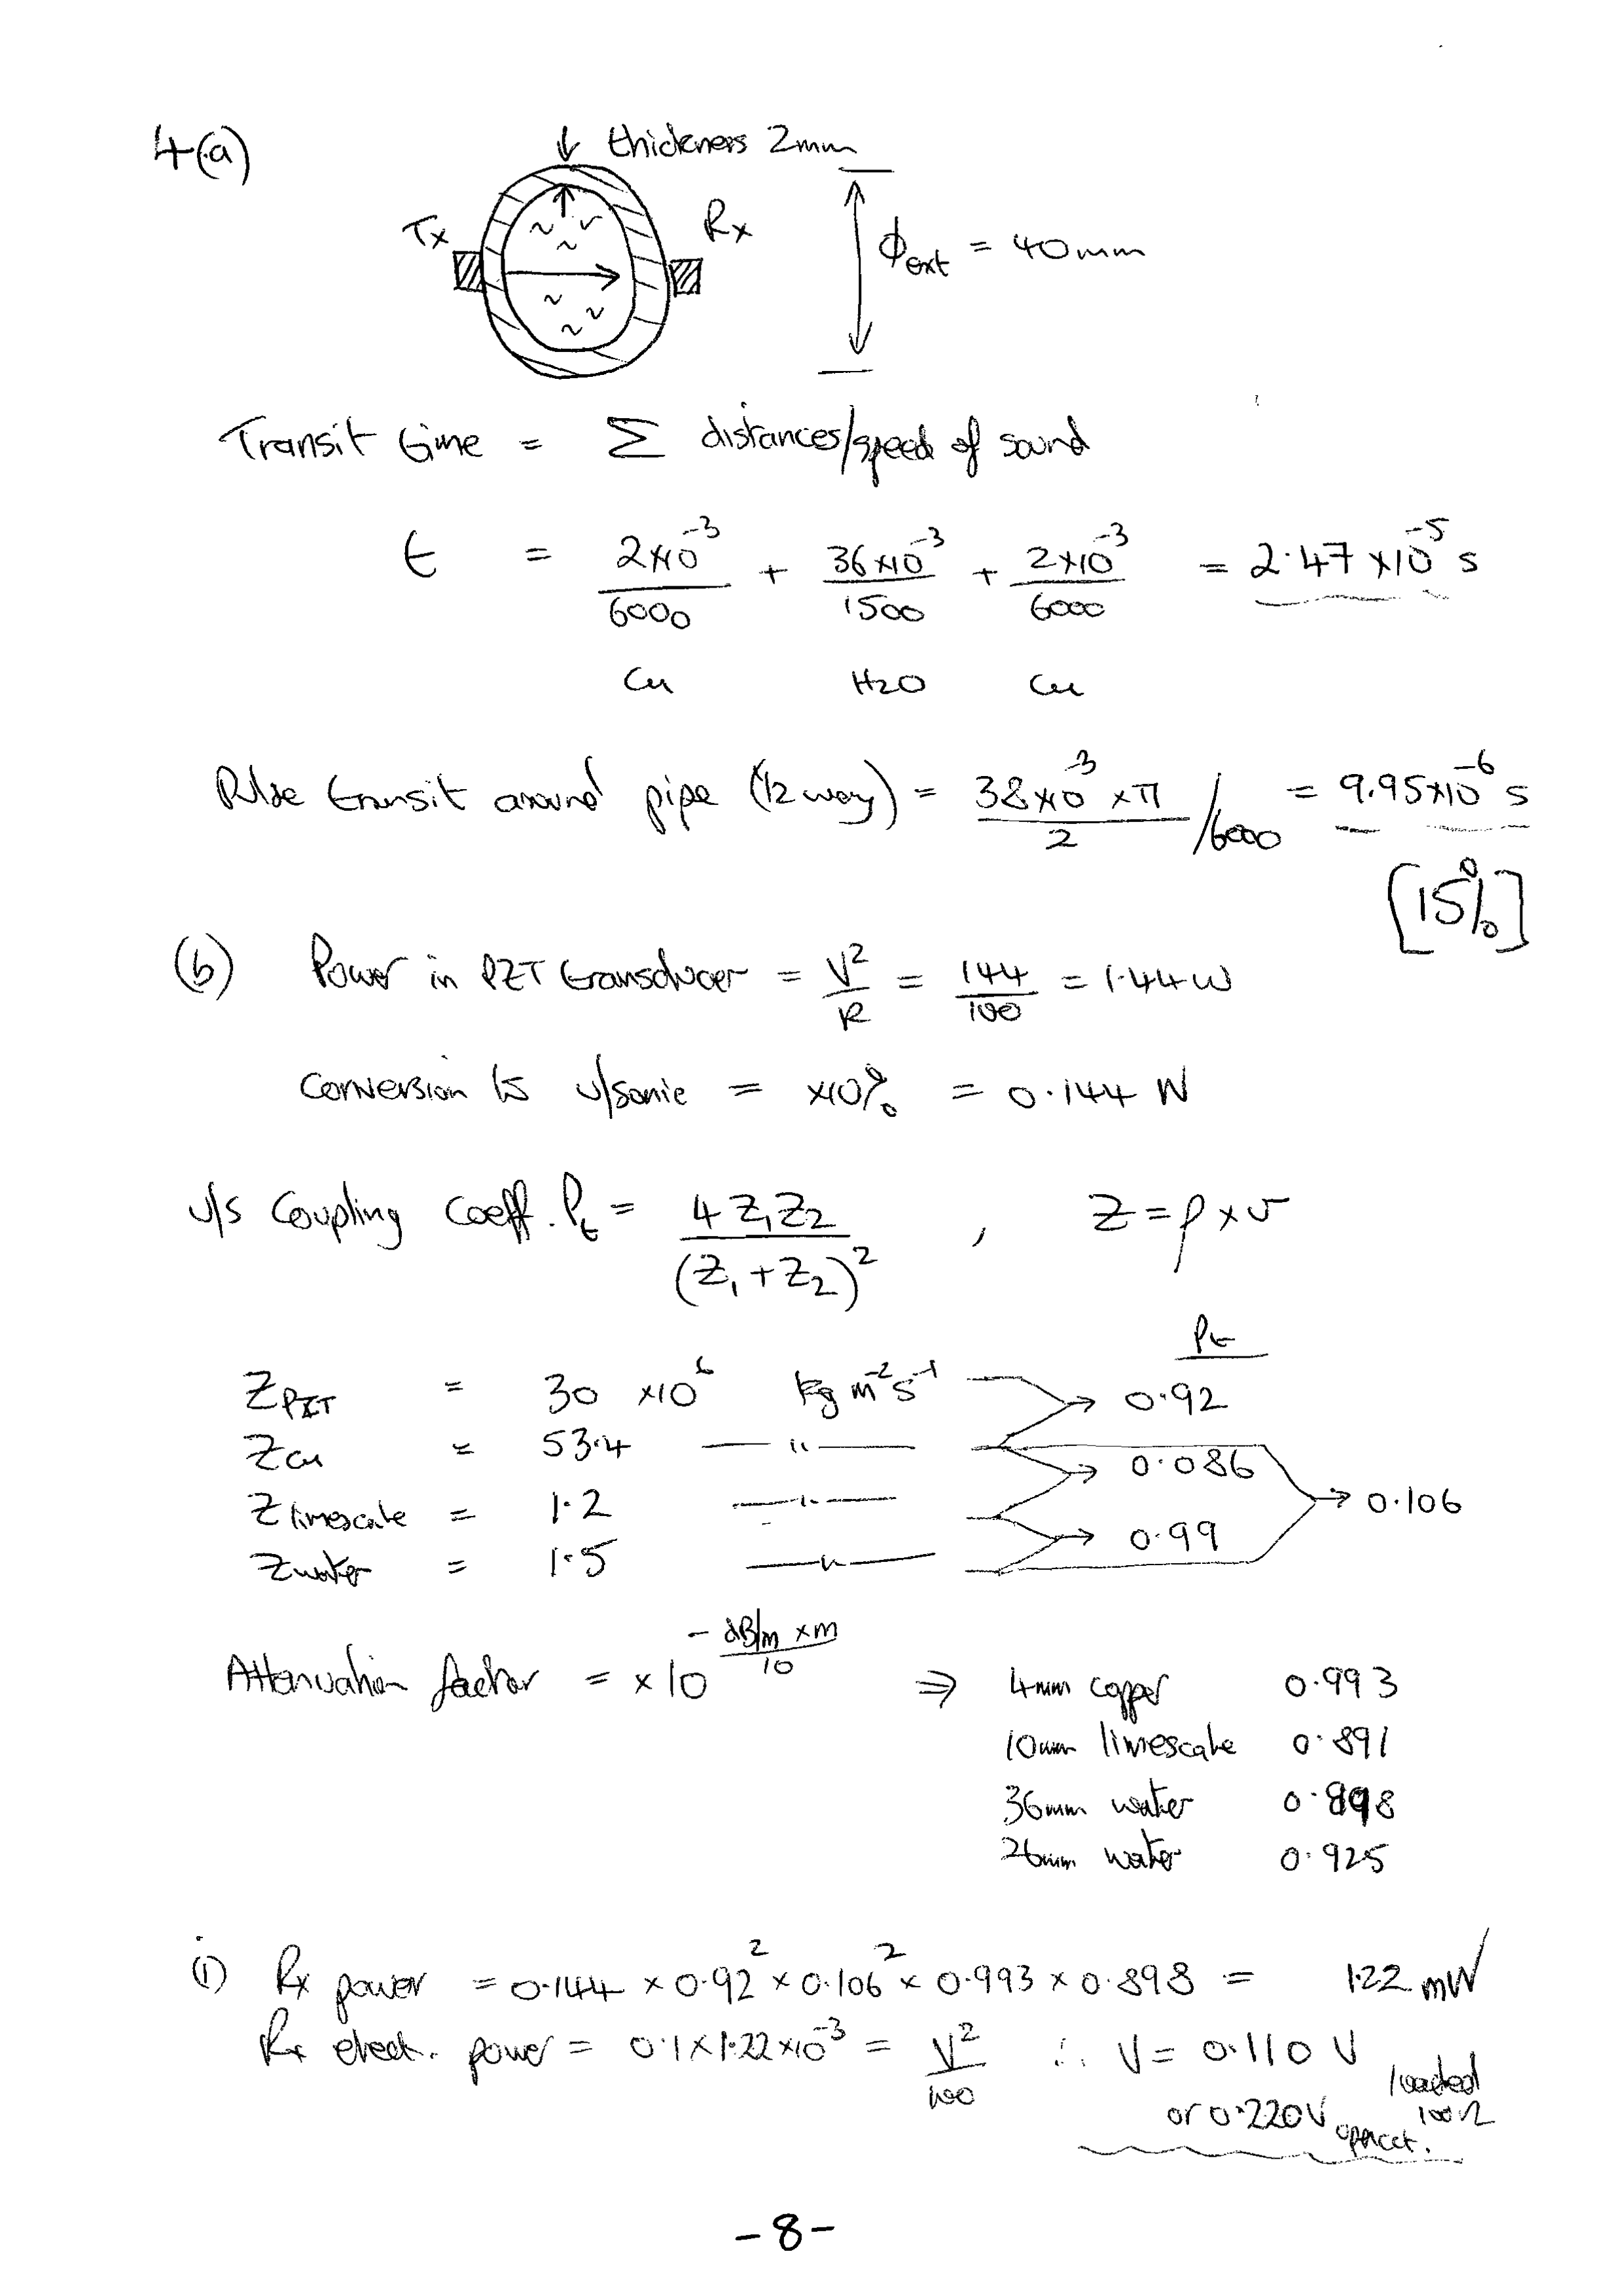 4(a)
↓ thickness 2mm
Tx
Rx
ϕext = 40mm
Transit time = Σ distances/speed of sound
t = 2×10⁻³/6000 + 36×10⁻³/1500 + 2×10⁻³/6000 = 2.47×10⁻⁵ s
Cu H2O Cu
Pulse transit around pipe (½ way) = 38×10⁻³×π/2 /6000 = 9.95×10⁻⁶ s
[15%]
(b) Power in PZT transducer = V²/R = 144/100 = 1.44 W
Conversion to u/sonic = ×10% = 0.144 W
u/s Coupling Coeff. Pt = 4Z₁Z₂/(Z₁+Z₂)² , Z = ρ×v
Pt
ZPZT = 30 ×10⁶ kg m⁻²s⁻¹ → 0.92
Zcu = 53.4 — " — → 0.086
Zlimescale = 1.2 — " — → 0.106
Zwater = 1.5 — " — → 0.99
Attenuation factor = ×10^(-dB/m ×m/10) ⇒ 4mm copper 0.993
10mm limescale 0.891
36mm water 0.898
26mm water 0.925
i) Rx power = 0.144 × 0.92² × 0.106² × 0.993 × 0.898 = 1.22 mW
Rx elect. power = 0.1×1.22×10⁻³ = V²/100 ∴ V = 0.110 V loaded 100Ω
or 0.220V open cct.
-8-